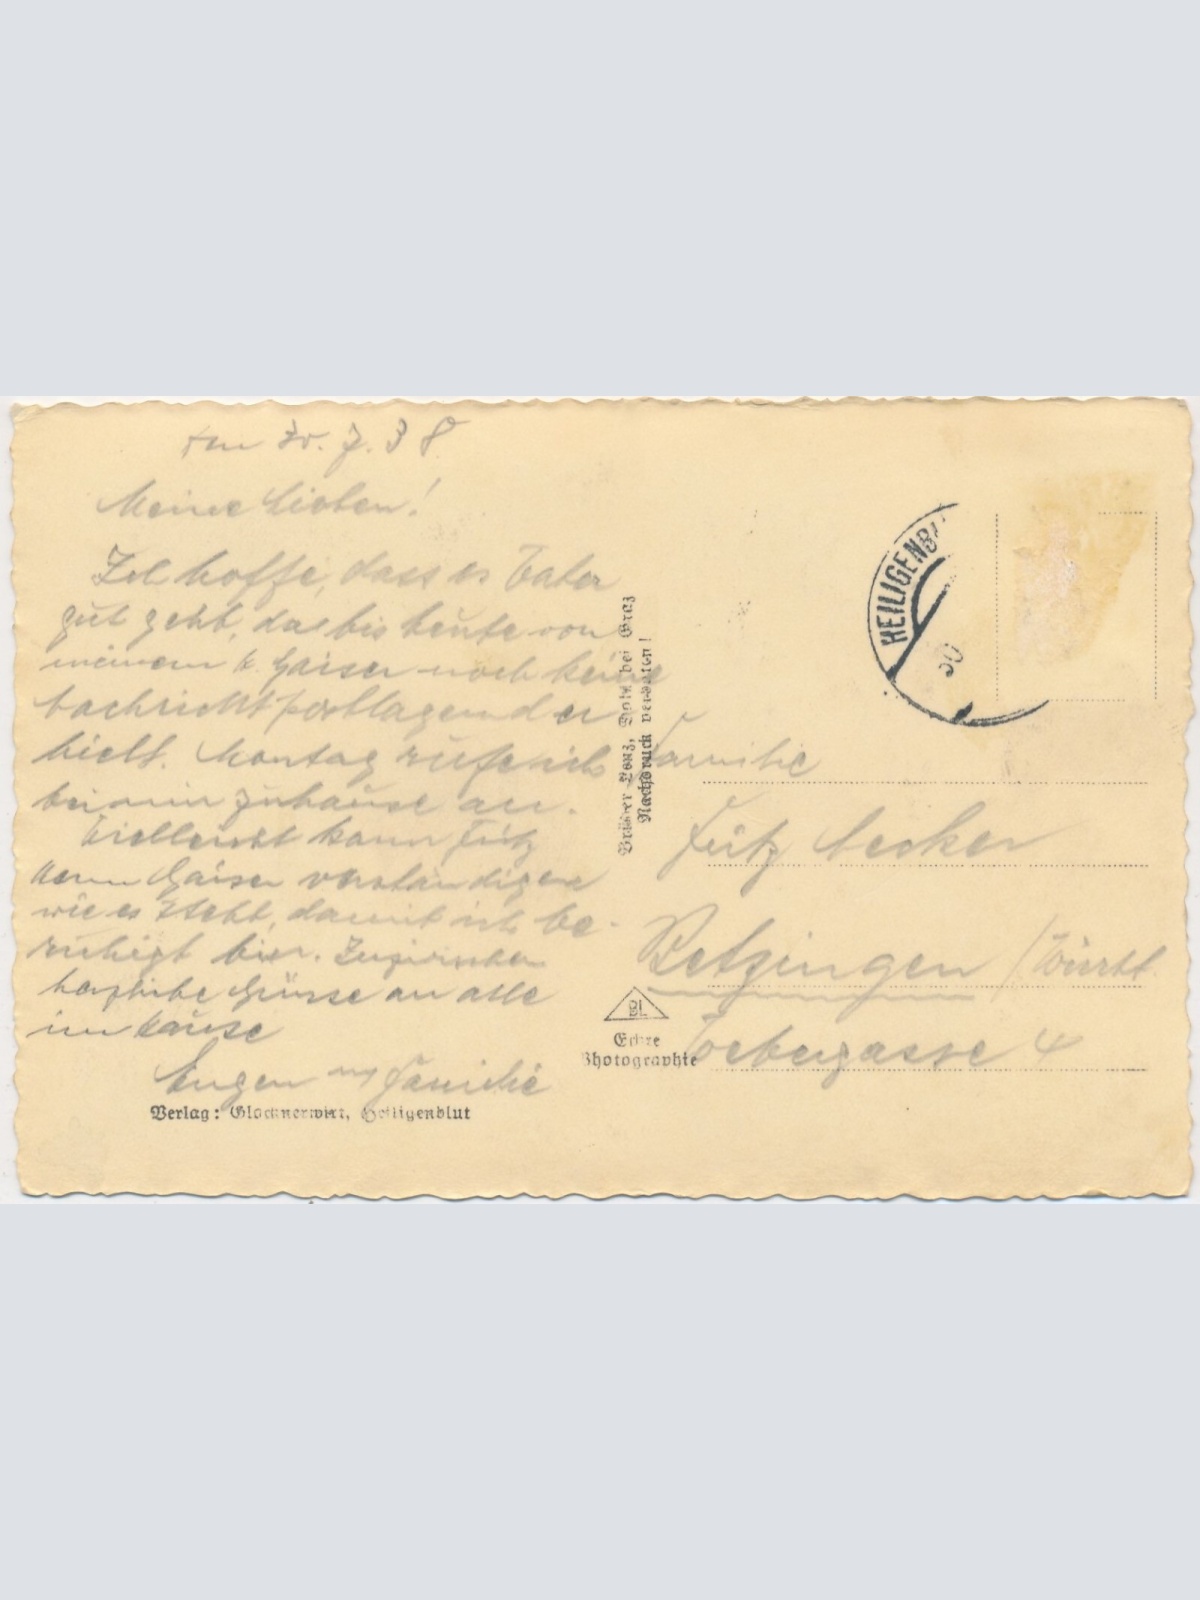 30. 7. 38
Meine Lieben!
Ich hoffe, dass es Vater
gut geht, da bis heute von
meinem H. Gaiser noch keine
Nachricht postlagernd er
hielt. Montag rufe ich
bei mir zuhause an.
Vielleicht kann Fritz
Herrn Gaiser verständigen
wie es steht, damit ich be-
ruhigt bin. Inzwischen
herzliche Grüsse an alle
im Hause
Eugen und Familie
Verlag: Glocknerwirt, Heiligenblut
Brüder Lenz, Dobl bei Graz
Nachdruck verboten!
BL
Echte
Photographie
HEILIGENBL
30
Familie
Fritz Becker
Betzingen /Württ.
4